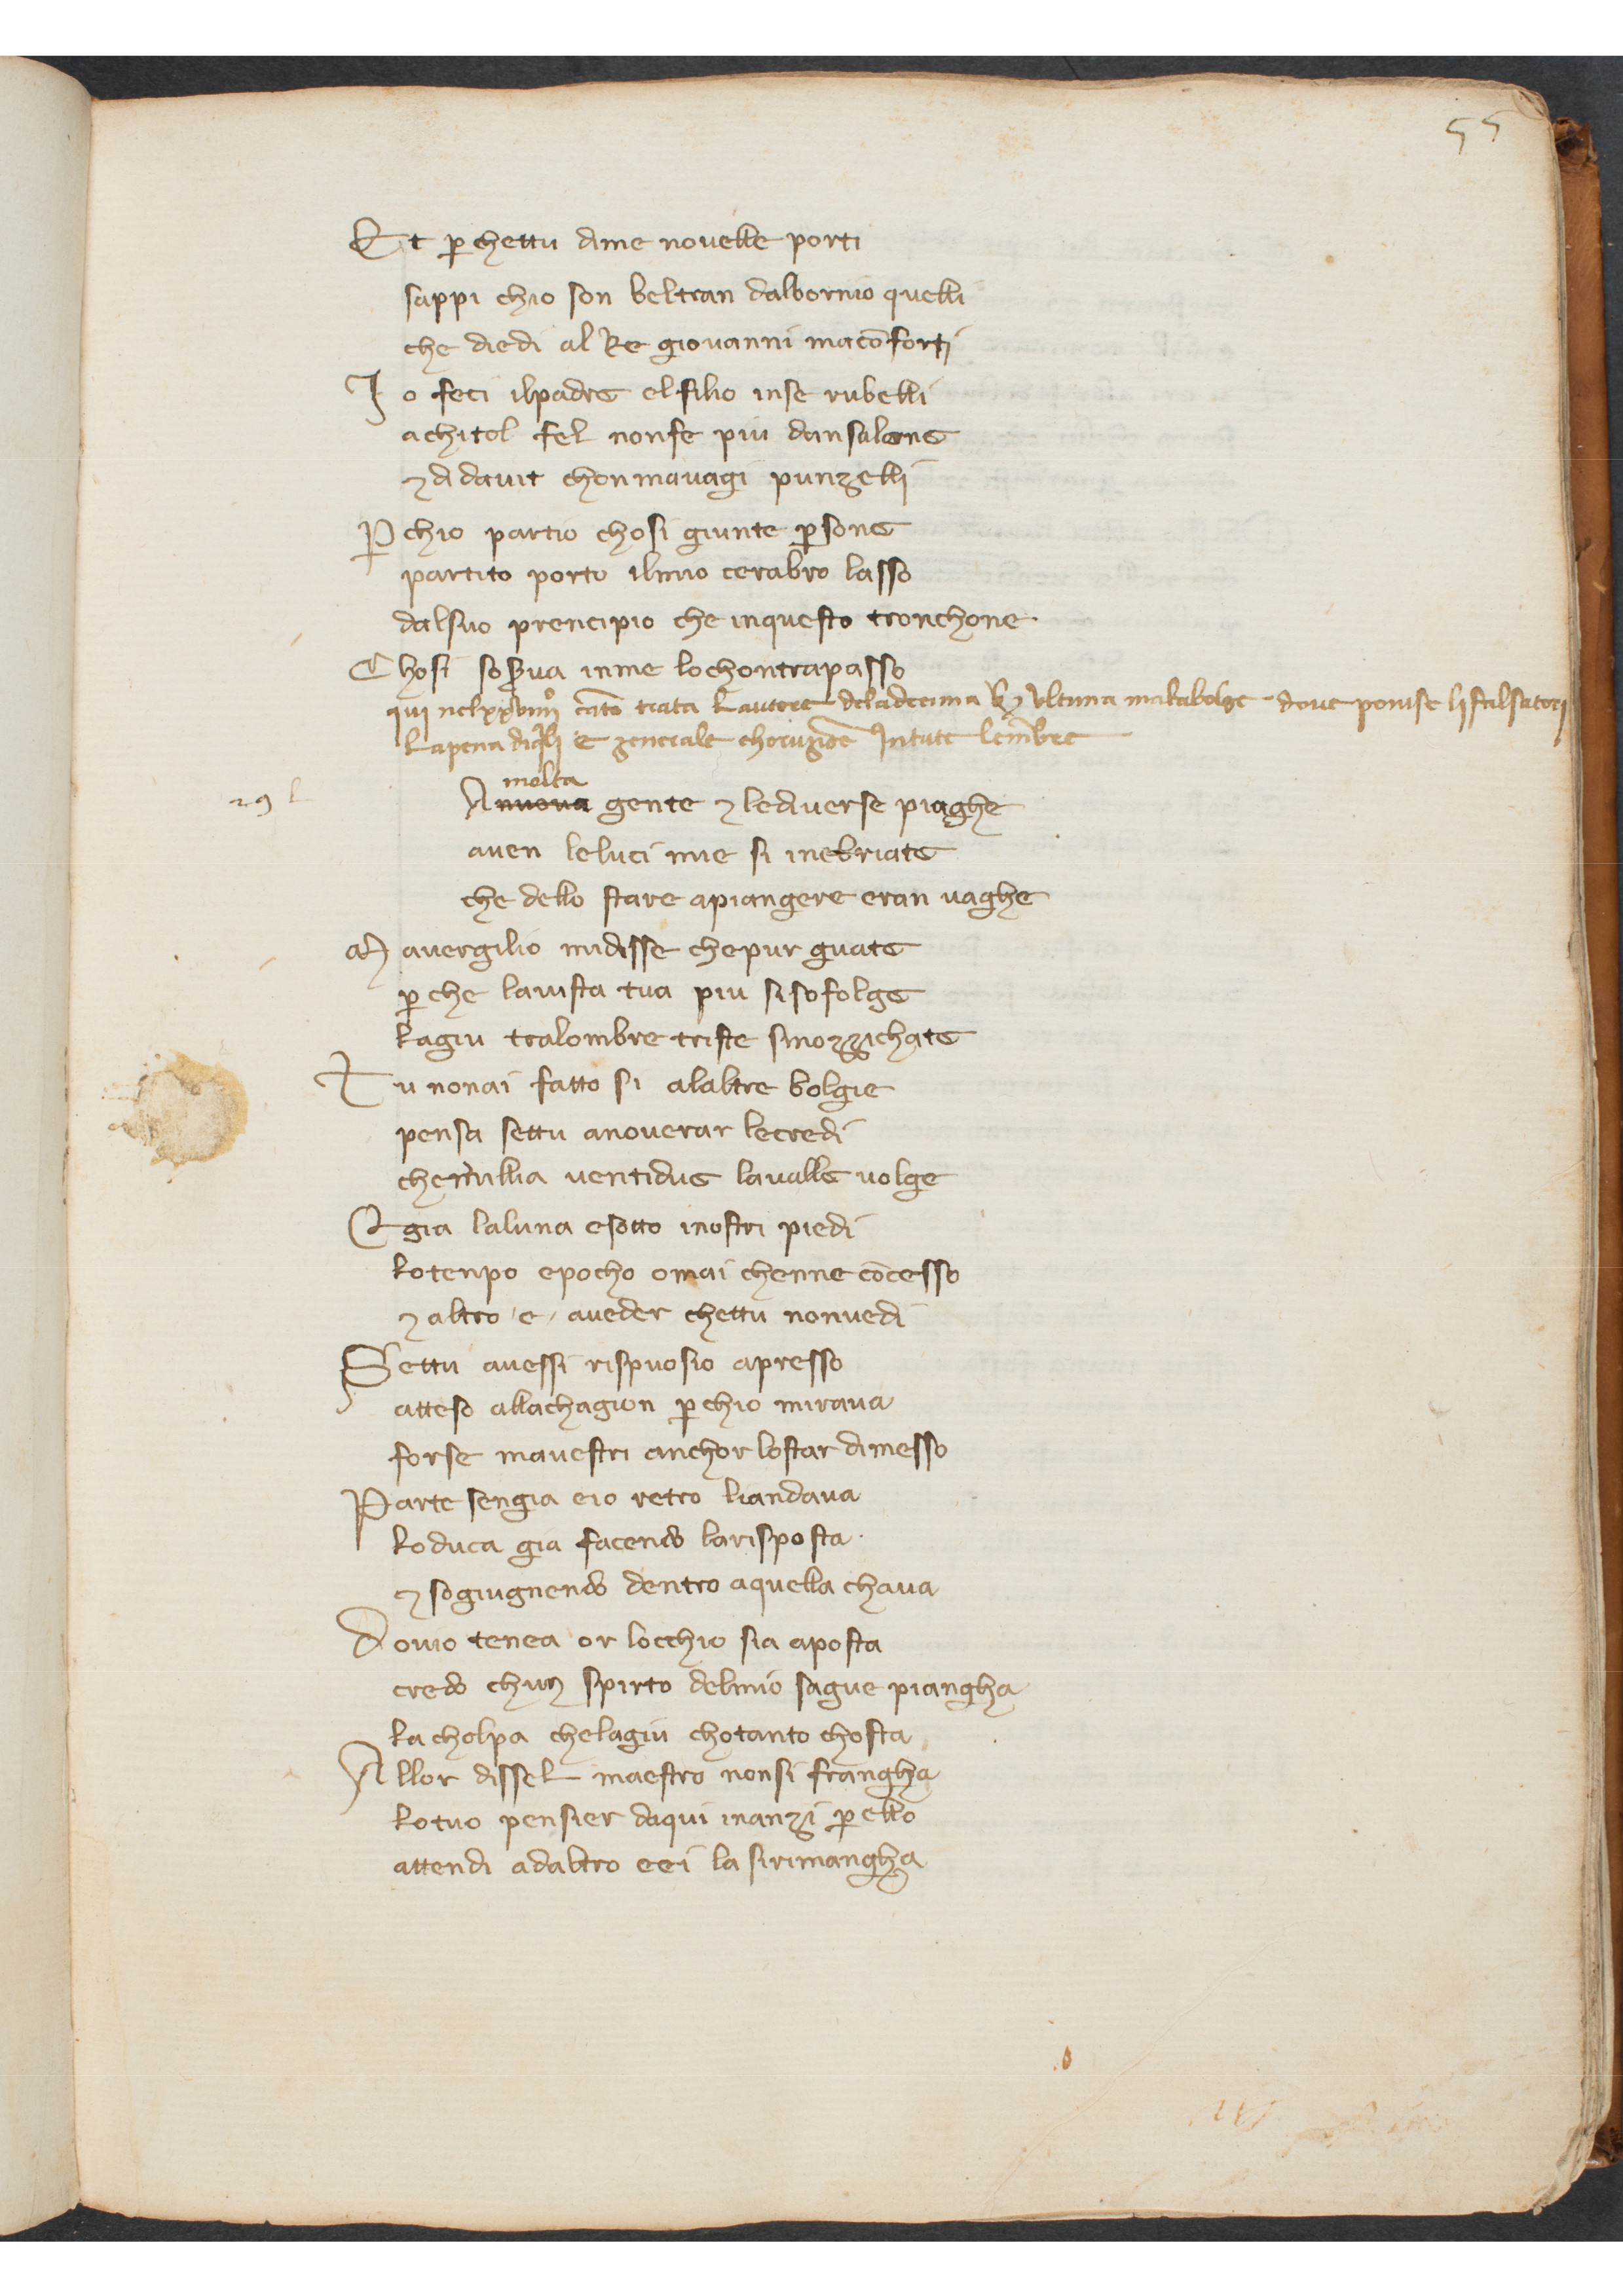 55
Et p̱ chettu dime novelle porti
sappi chio son beltran dalbornio quelli
che diedi al Re giovanni macōforti
Io feci ilpadre elfilio inse rubelli
achitol fel nonfe piu dansalone
⁊ di davit chonmavagi punzelli
P̱chio partio chosi giunte p̱sone
partito porto ilmio cerabro lasso
dalsuo prencipio che inquesto tronchone
Chosi sos̱va inme lochontrapasso
qui nelxxviiijº cāto trata lautore deladecima ⁊ ultima malabolge dove ponise li falsatori
lapena di e generale Intute
29
molta
La nuova gente ⁊ lediverse piaghe
aven leluci mie si inebriate
che dello stare apiangere eran vaghe
Mavergilio midisse chepur guate
p̱che lavista tua piu sisofolge
lagiu tralombre triste smozzichate
Tu nonai fatto si alaltre bolgie
pensa settu anoverar lecredi
che millia ventidue lavalle volge
E gia laluna esotto inostri piedi
lotenpo epocho omai chenne cōcesso
⁊ altro e aveder chettu nonvedi
Settu avessi rispuosio apresso
atteso allachagion p̱chio mirava
forse mavestri anchor lostar dimesso
Parte sengia eio retro liandava
loduca gia facendo larisposta
⁊ sogiugnendo dentro aquella chava
Dovio tenea or locchio sia aposta
credo chun spirto delmio sague piangha
lacholpa chelagiu chotanto chosta
Allor dissel maestro nonsi frangha
lotuo pensier daqui inanzi p̱ello
attendi adaltro eei la sirimangha